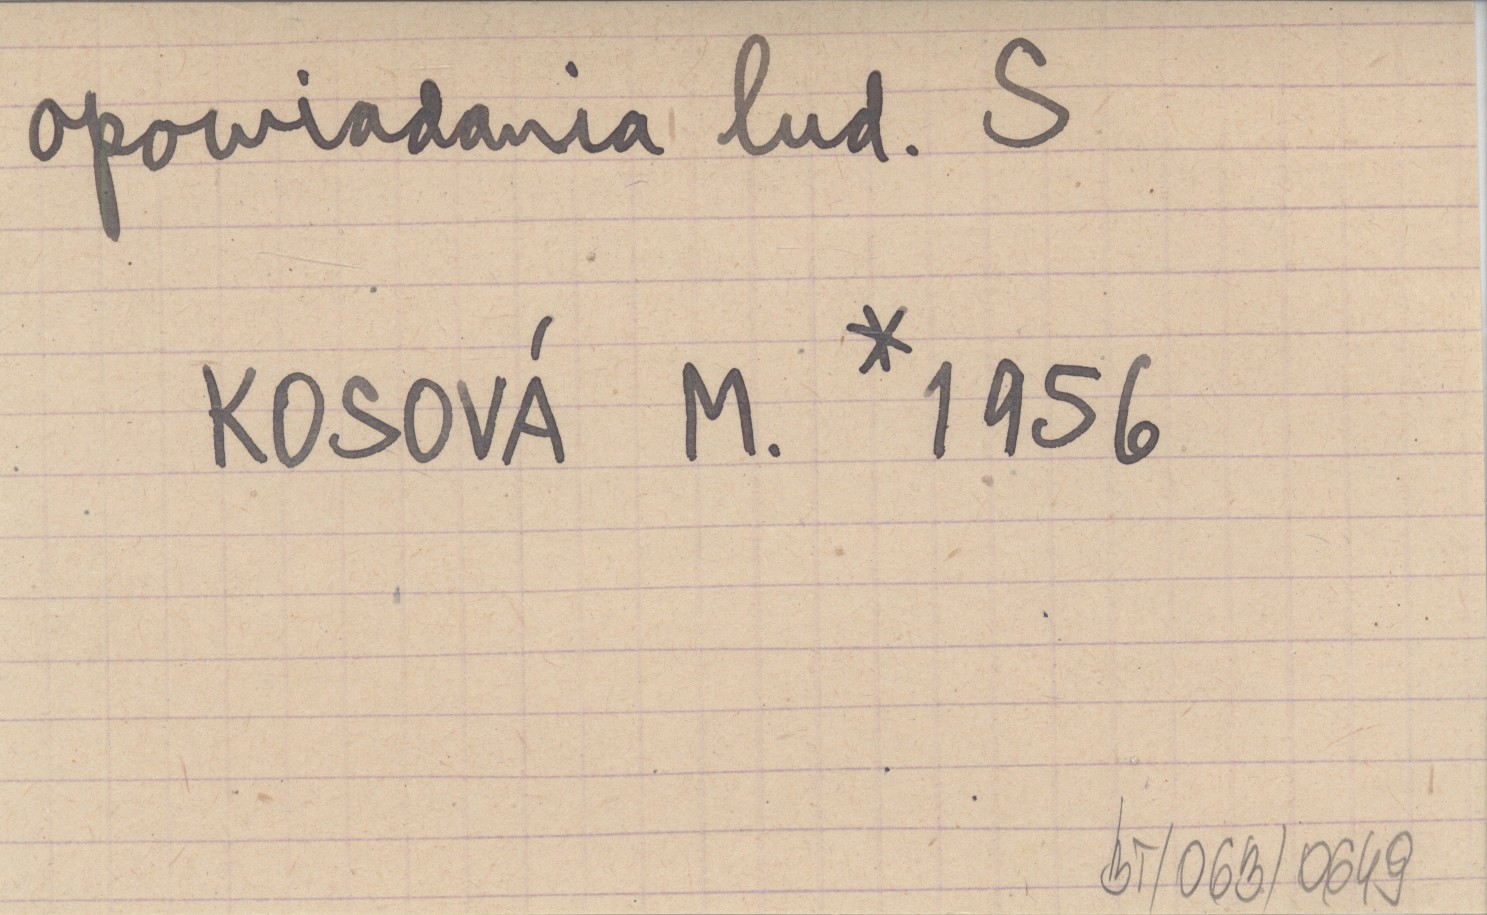 opowiadania lud. S
KOSOVÁ M. *1956
BT/063/0649